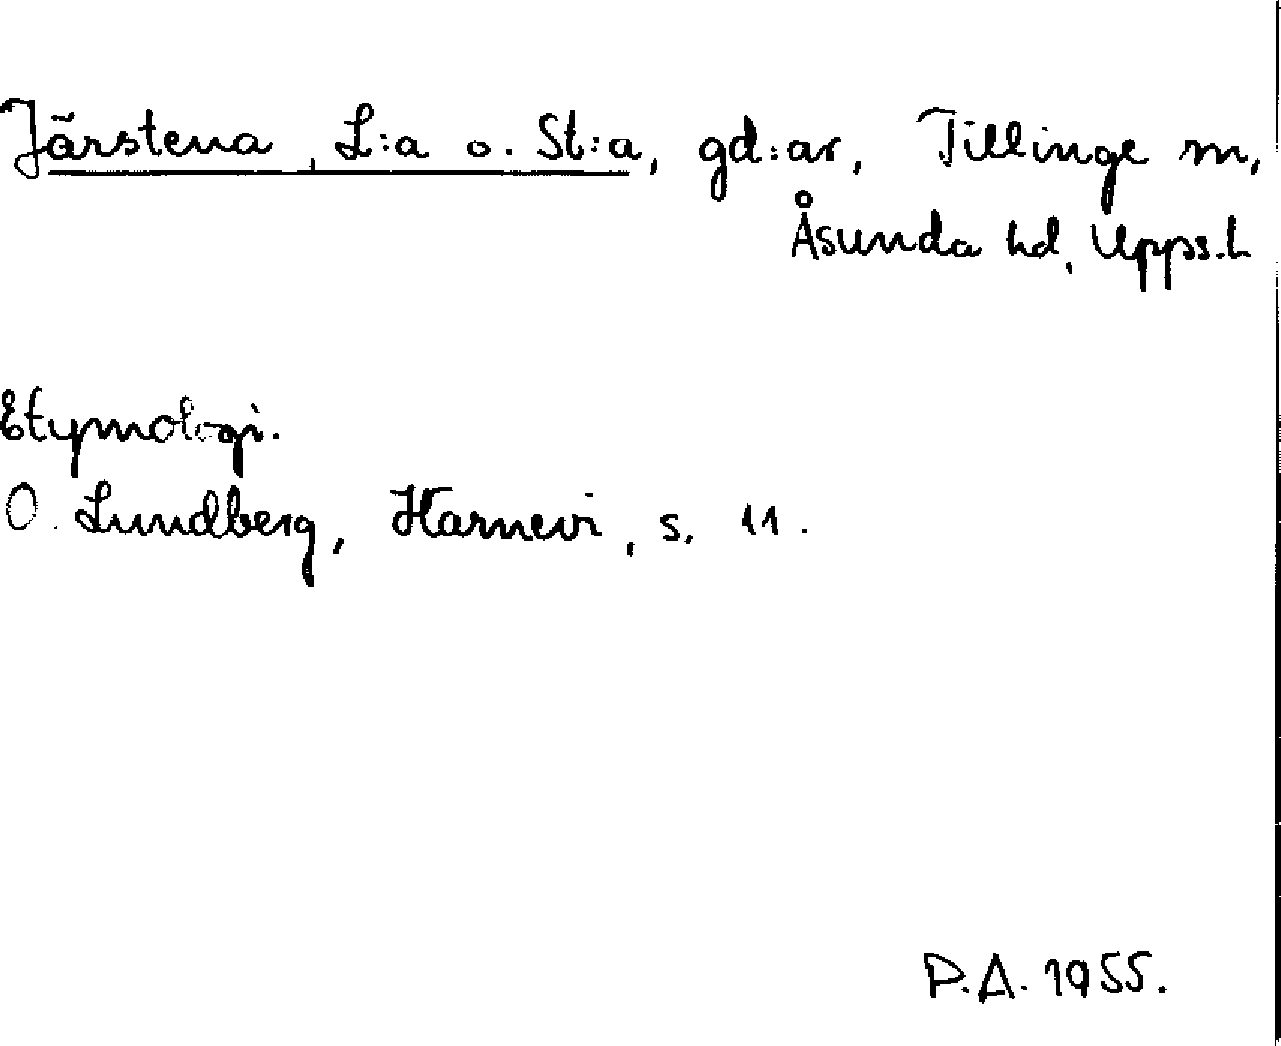 Järstena, L:a o. St:a, gd:ar, Tillinge sn,
Åsunda hd, Upps.l.
Etymologi.
O. Lundberg, Harnevi, s. 11.
P.A. 1955.